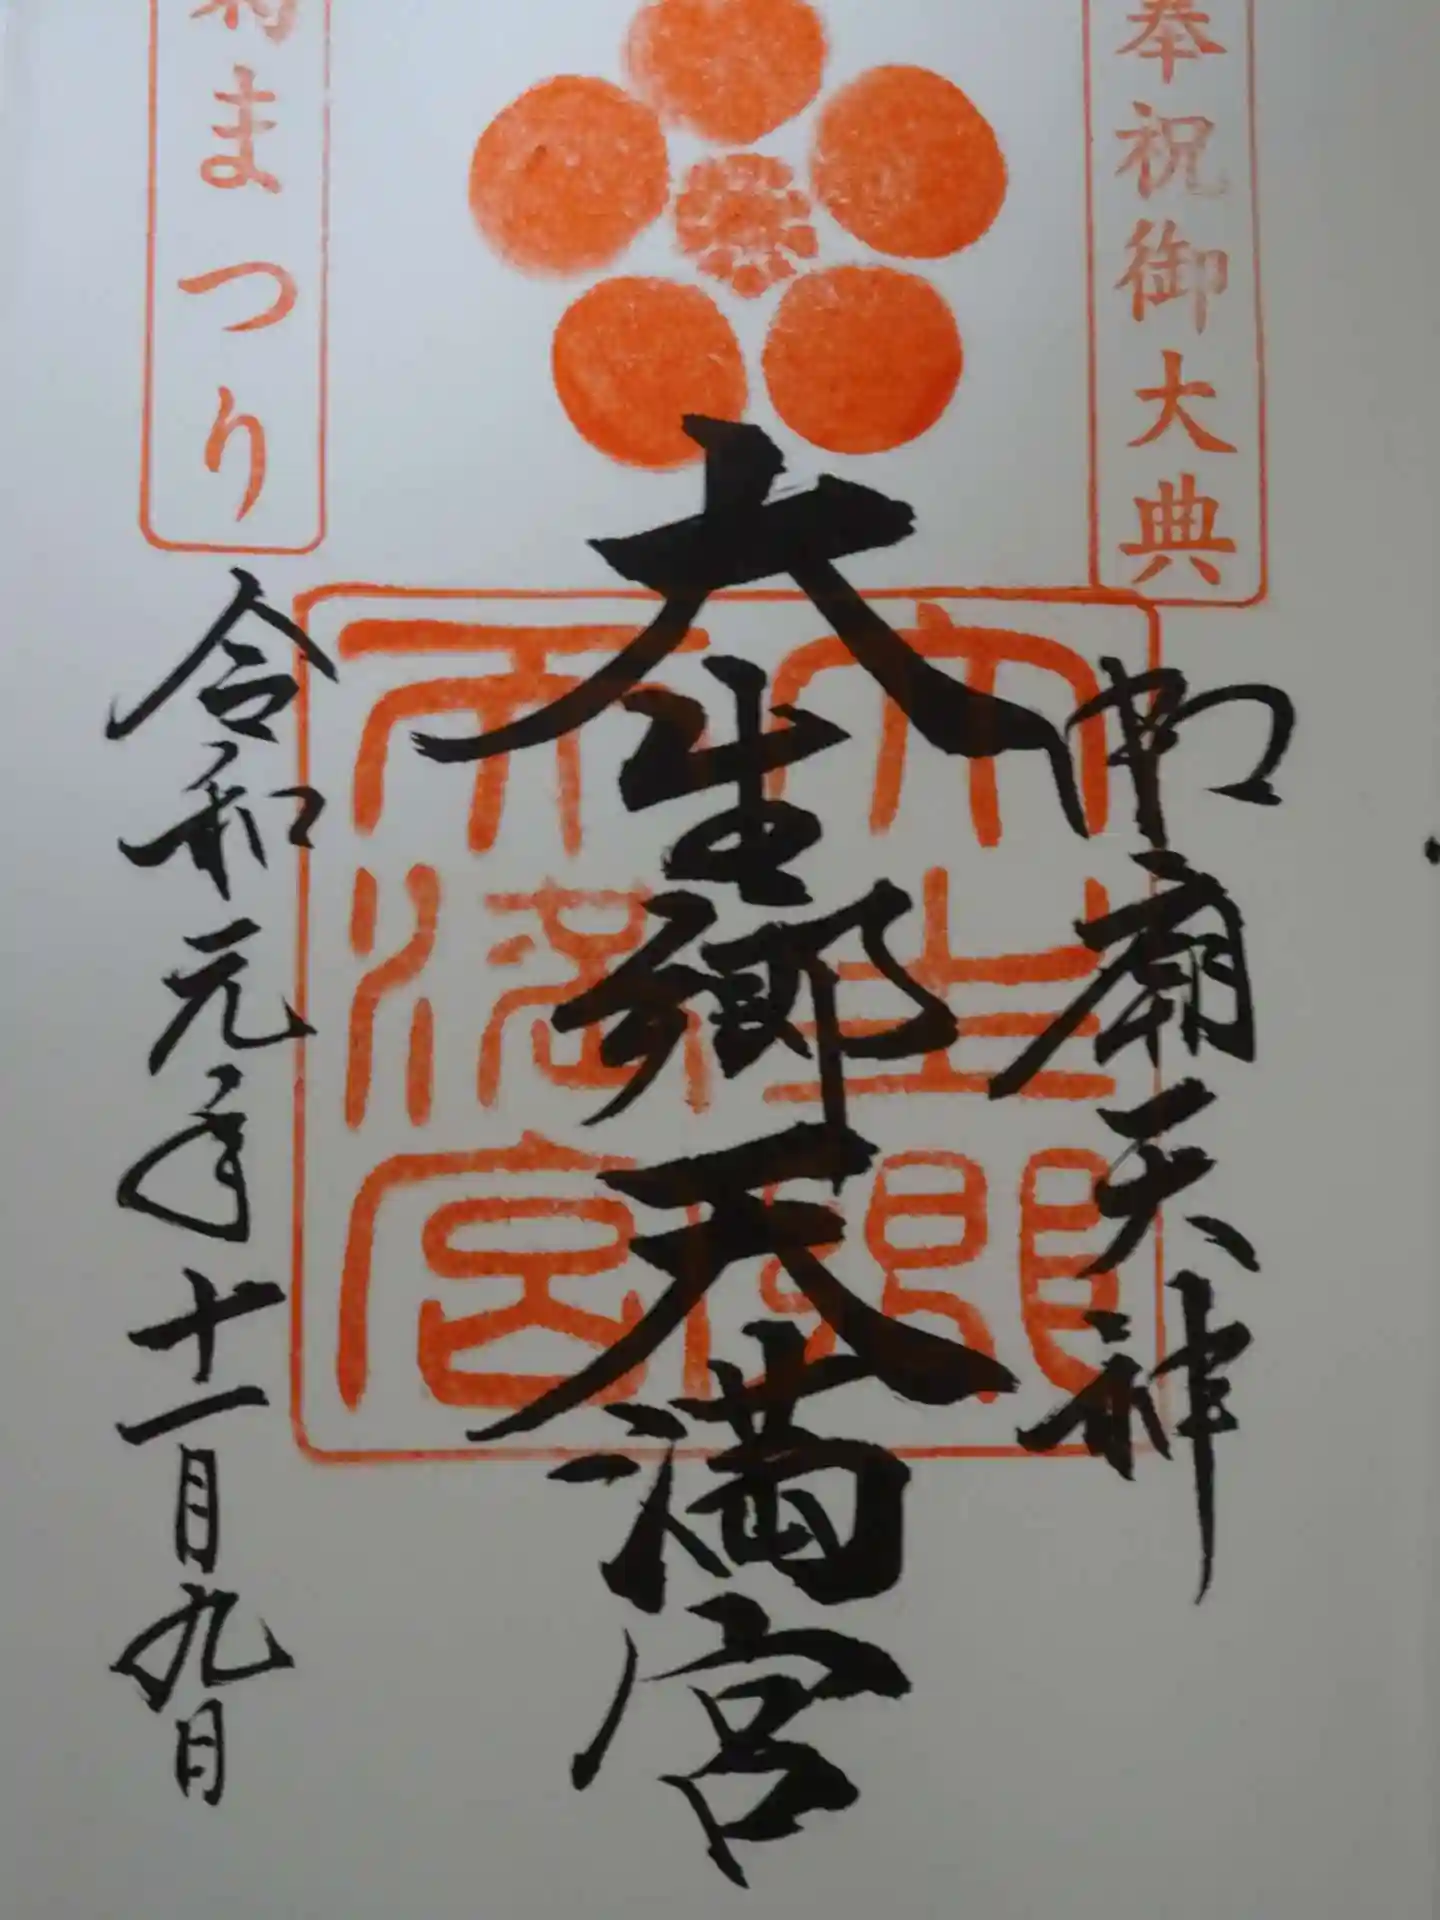 奉祝御大典
御廟天神
大生郷天満宮
大生郷
天満宮
菊まつり
令和元年十一月九日